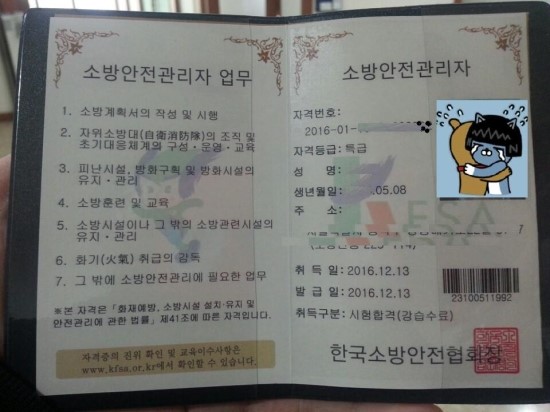 소방안전관리자 업무
1. 소방계획서의 작성 및 시행
2. 자위소방대(自衛消防隊)의 조직 및
초기대응체계의 구성·운영·교육
3. 피난시설, 방화구획 및 방화시설의
유지·관리
4. 소방훈련 및 교육
5. 소방시설이나 그 밖의 소방관련시설의
유지·관리
6. 화기(火氣) 취급의 감독
7. 그 밖에 소방안전관리에 필요한 업무
※본 자격은 「화재예방, 소방시설 설치·유지 및
안전관리에 관한 법률」 제41조에 따른 자격입니다.
자격증의 진위 확인 및 교육이수사항은
www.kfsa.or.kr에서 확인할 수 있습니다.
소방안전관리자
자격번호:
2016-01-
자격등급: 특급
성 명
생년월일 .05.08
주 소 :
취 득 일: 2016.12.13
발 급 일: 2016.12.13
23100511992
취득구분: 시험합격(강습수료)
한국소방안전협회장